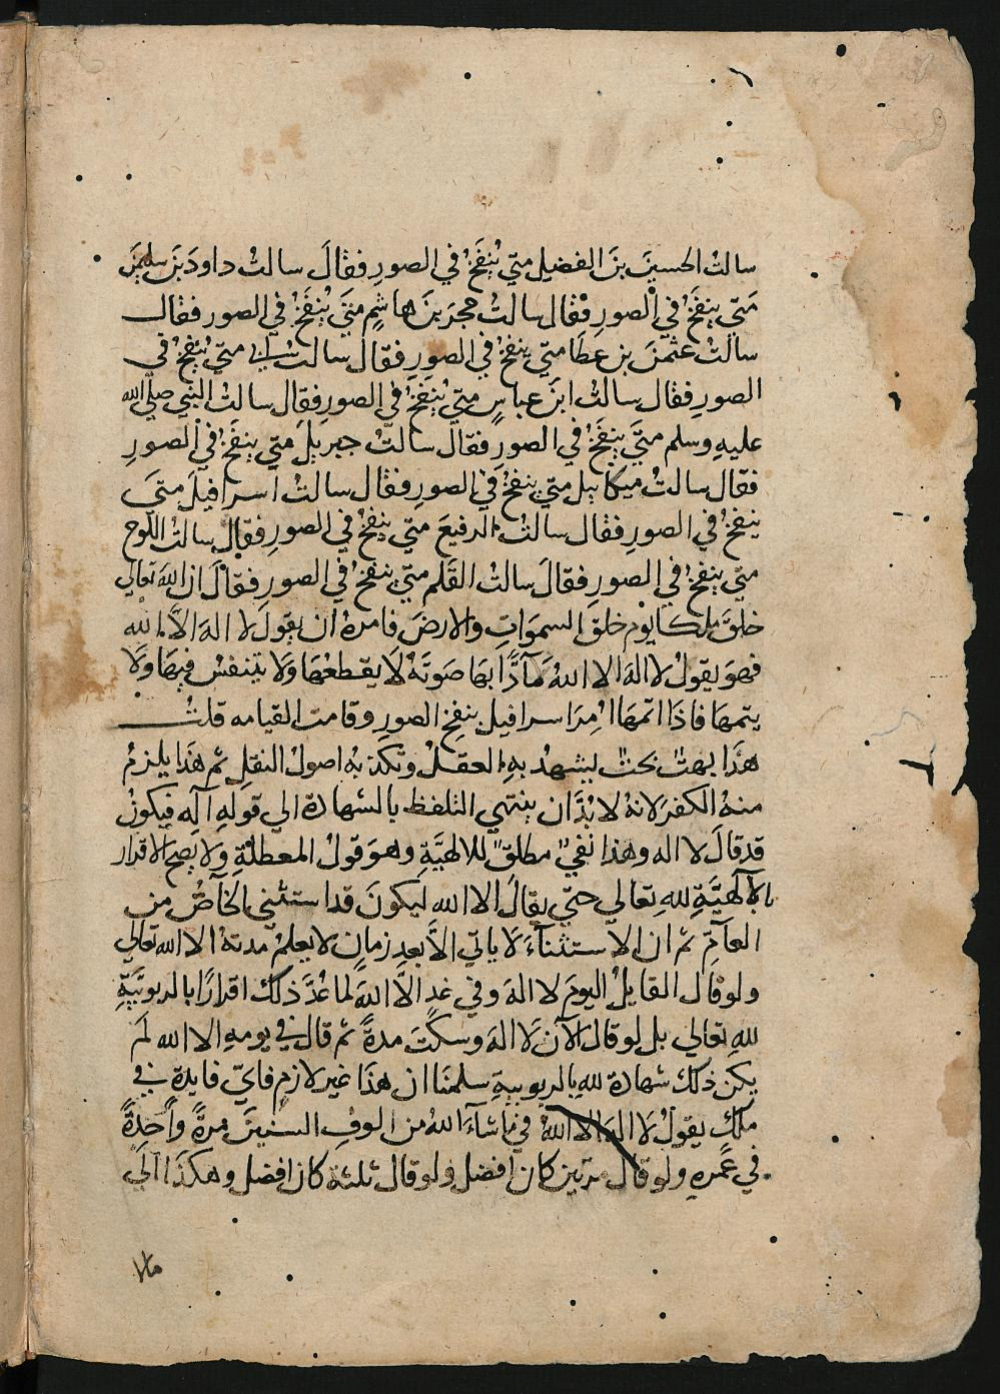 سالتُ الحسينَ بنَ الفضيل متي يُنفَخُ في الصورِ فقالَ سالتُ داودَ بنَ سليمنَ
مَتي ينفَخُ في الصورِ فقال سالتُ حجرَ بنَ هاشمٍ متيَ يُنفَخُ في الصور فقال
سالتُ عثمنَ بن عطا متي ينفخُ في الصورِ فقال سالت متي يُنفخُ في
الصورِ فقال سالتُ ابنَ عباسٍ متي يُنفَخُ في الصورِ فقال سالتُ النبي صلي الله
عليهِ وسلم متيَ ينفَخُ في الصورِ فقالَ سالتُ جبريلَ متي ينفَخُ في الصورِ
فقال سالتُ ميكاييل متي ينفخُ في الصورِ فقال سالتُ اسرافيلَ متيَ
ينفخُ في الصورِ فقال سالتُ الرفيعَ متي ينفخُ في الصورِ فقال سالتُ اللوحَ
متي ينفخُ في الصورِ فقالَ سالتُ القَلمَ متي ينفخُ في الصورِ فقالَ ان اللهَ تعالي
خلقَ ملكا يوم خلق السمواتِ والارضَ فامرهُ ان يقولَ لا الهَ الا الله
فهوَ يقولُ لا الهَ الا اللهُ مآدًّا بها صَوتَهُ لا يقطعُها ولا يتنفسُ فيها ولا
يتمها فاذا اتمها اُمِرَ اسرافيل بنفخِ الصورِ وقامت القيامه قلتُ
هذا بهتٌ بحتٌ يشهدُ بهِ العقلُ وتكذبهُ اصولُ النقلِ ثم هذا يلزمُ
منهُ الكفرَ لانهُ لا بُدَّ ان ينتهي التلفظ بالشهادة الي قولهِ آلِه فيكونُ
قد قالَ لا اله وهذا نفيٌ مطلقٌ للالهيَّةِ وهوَ قولُ المعطلةِ ولا يصح الاقرار
بالآلهيَّةِ للهِ تعالي حتي يقالَ الا الله ليكونَ قد استثني الخآصُّ من
العآمِّ ثم ان الاستثنآءَ لا ياتي الا بعدِ زمانٍ لا يعلمُ مدتهُ الا الله تعالي
ولو قال القايلُ اليومَ لا الهَ وفي غدٍ الا اللهَ لما عُدَّ ذلك اقرارًا بالربوبيَّةِ
للهِ تعالي بل لو قال الآن لا الهَ وسكتَ مدةً ثم قال في يومهِ الا الله لم
يكن ذلك شهادةً للهِ بالربوبيةِ سلمنا ان هذا غير لازمٍ فايّ فايدة في
ملكٍ يقولُ لا الهَ الا اللهُ في ماشآءَ اللهُ من الوفِ السنينَ مرةً واحدةً
في عمرهِ ولو قال مرتين كان افضل ولو قال ثلثة كان افضل وهكذا الي